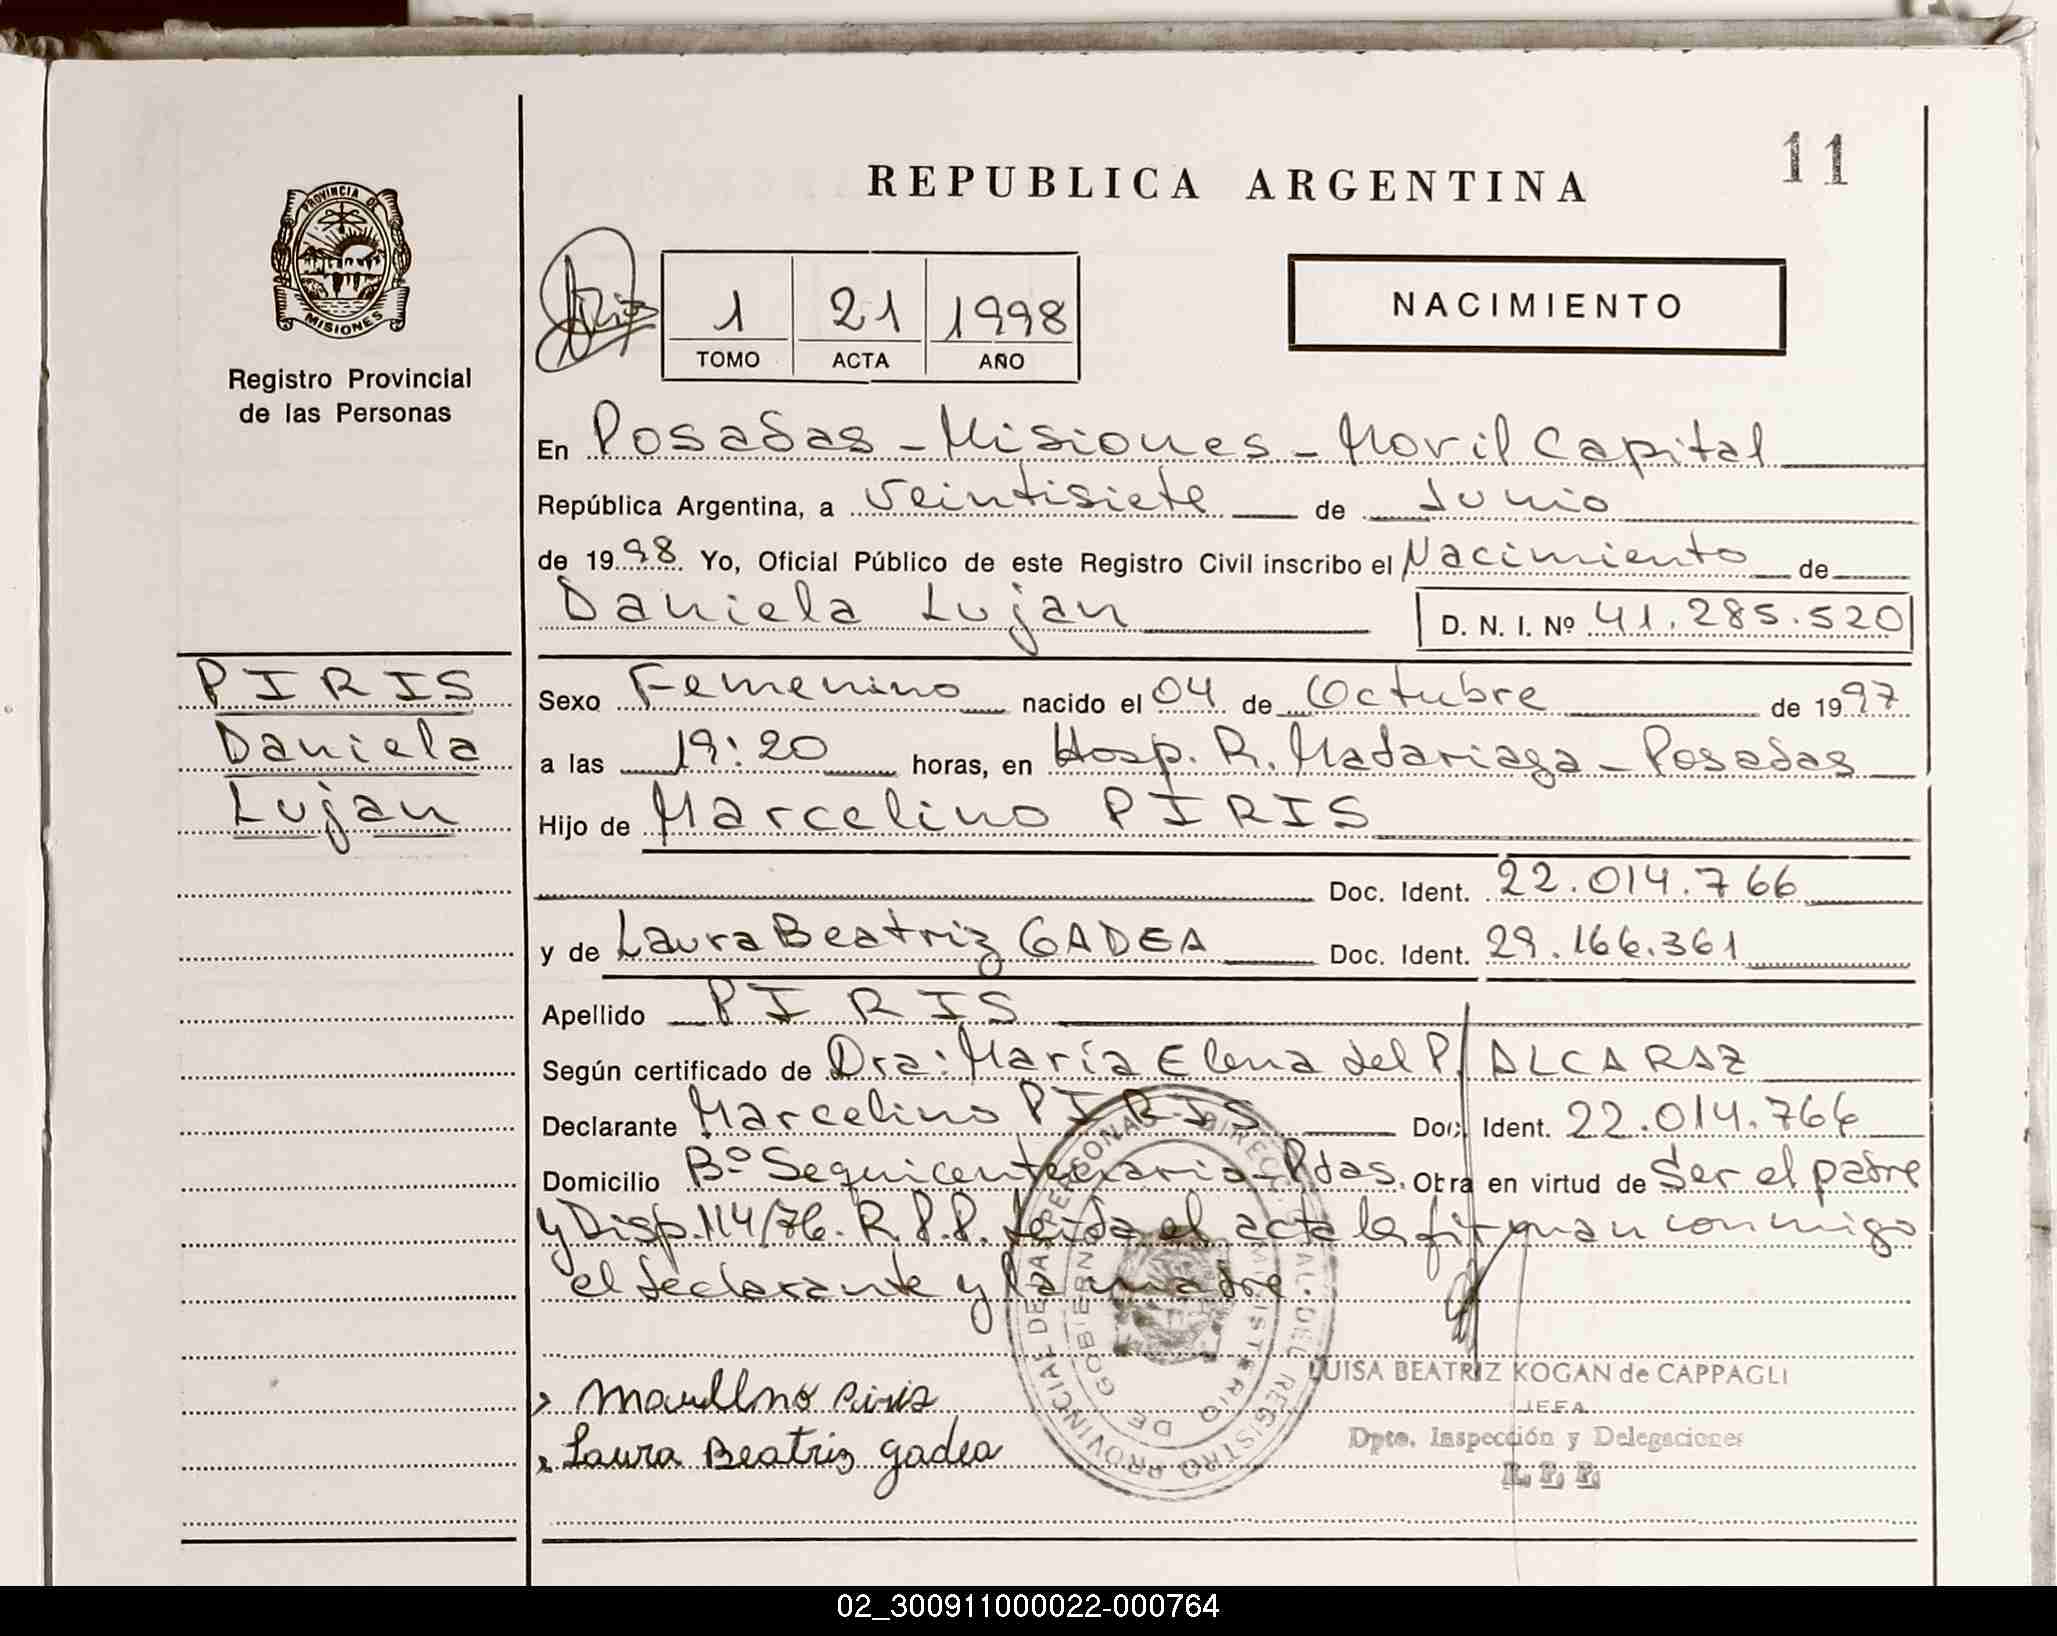 11
REPUBLICA ARGENTINA
PROVINCIA DE
MISIONES
Registro Provincial
de las Personas
1 21 1998
TOMO ACTA AÑO
NACIMIENTO
En Posadas - Misiones - Movil Capital
República Argentina, a veintisiete de Junio
de 1998 Yo, Oficial Público de este Registro Civil inscribo el Nacimiento de
Daniela Lujan D. N. I. Nº 41.285.520
PIRIS
Daniela
Lujan
Sexo Femenino nacido el 04 de Octubre de 1997
a las 19:20 horas, en Hosp. R. Madariaga - Posadas
Hijo de Marcelino PIRIS
Doc. Ident. 22.014.766
y de Laura Beatriz GADEA Doc. Ident. 29.166.361
Apellido PIRIS
Según certificado de Dra: María Elena del P. ALCARAZ
Declarante Marcelino PIRIS Doc. Ident. 22.014.766
Domicilio Bº Sequicentenario - Pdas. Obra en virtud de Ser el padre
y Disp. 114/76. R.P.P. Leida el acta la firman conmigo
el declarante y la madre
Marcelino Piris
Laura Beatriz gadea
LUISA BEATRIZ KOGAN de CAPPAGLI
JEFA
Dpto. Inspección y Delegaciones
DIRECC PROVINCIAL DEL REGISTRO PROVINCIAL DE LA PERSONAS
MINISTERIO DE GOBIERNO
02_300911000022-000764